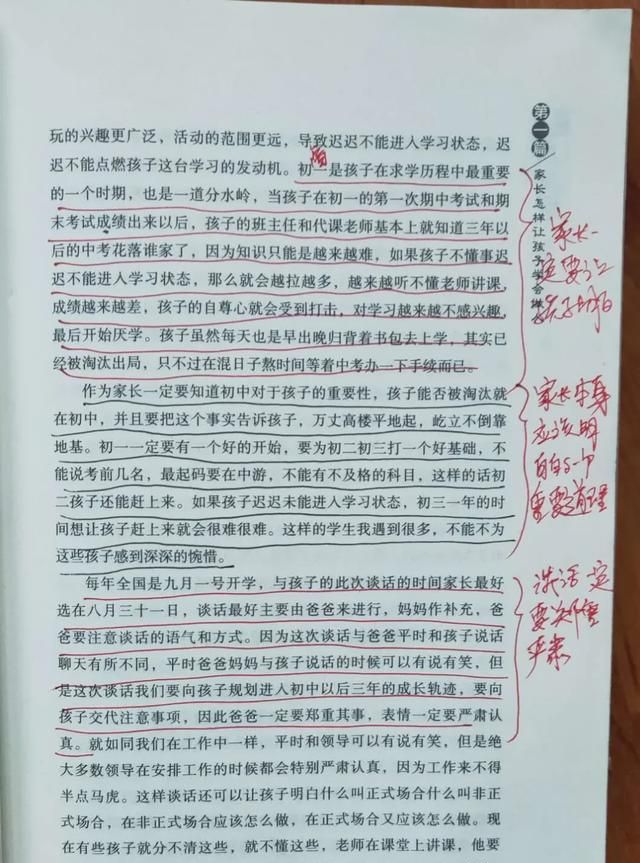 玩的兴趣更广泛，活动的范围更远，导致迟迟不能进入学习状态，迟
迟不能点燃孩子这台学习的发动机。初一是孩子在求学历程中最重要
的一个时期，也是一道分水岭，当孩子在初一的第一次期中考试和期
末考试成绩出来以后，孩子的班主任和代课老师基本上就知道三年以
后的中考花落谁家了，因为知识只能是越来越难，如果孩子不懂事迟
迟不能进入学习状态，那么就会越拉越多，越来越听不懂老师讲课，
成绩越来越差，孩子的自尊心就会受到打击，对学习越来越不感兴趣，
最后开始厌学。孩子虽然每天也是早出晚归背着书包去上学，其实已
经被淘汰出局，只不过在混日子熬时间等着中考办一下手续而已。
作为家长一定要知道初中对于孩子的重要性，孩子能否被淘汰就
在初中，并且要把这个事实告诉孩子，万丈高楼平地起，屹立不倒靠
地基。初一一定要有一个好的开始，要为初二初三打一个好基础，不
能说考前几名，最起码要在中游，不能有不及格的科目，这样的话初
二孩子还能赶上来。如果孩子迟迟未能进入学习状态，初三一年的时
间想让孩子赶上来就会很难很难。这样的学生我遇到很多，不能不为
这些孩子感到深深的惋惜。
每年全国是九月一号开学，与孩子的此次谈话的时间家长最好
选在八月三十一日，谈话最好主要由爸爸来进行，妈妈作补充，爸
爸要注意谈话的语气和方式。因为这次谈话与爸爸平时和孩子说话
聊天有所不同，平时爸爸妈妈与孩子说话的时候可以有说有笑，但
是这次谈话我们要向孩子规划进入初中以后三年的成长轨迹，要向
孩子交代注意事项，因此爸爸一定要郑重其事，表情一定要严肃认
真。就如同我们在工作中一样，平时和领导可以有说有笑，但是绝
大多数领导在安排工作的时候都会特别严肃认真，因为工作来不得
半点马虎。这样谈话还可以让孩子明白什么叫正式场合什么叫非正
式场合，在非正式场合应该怎么做，在正式场合又应该怎么做。现
在有些孩子就分不清这些，就不懂这些，老师在课堂上讲课，他要
第一篇
家长怎样让孩子学会
家长一
定要让
孩子明白
家长本身
应该明
白这个
重要道理
谈话一定
要郑重
严肃